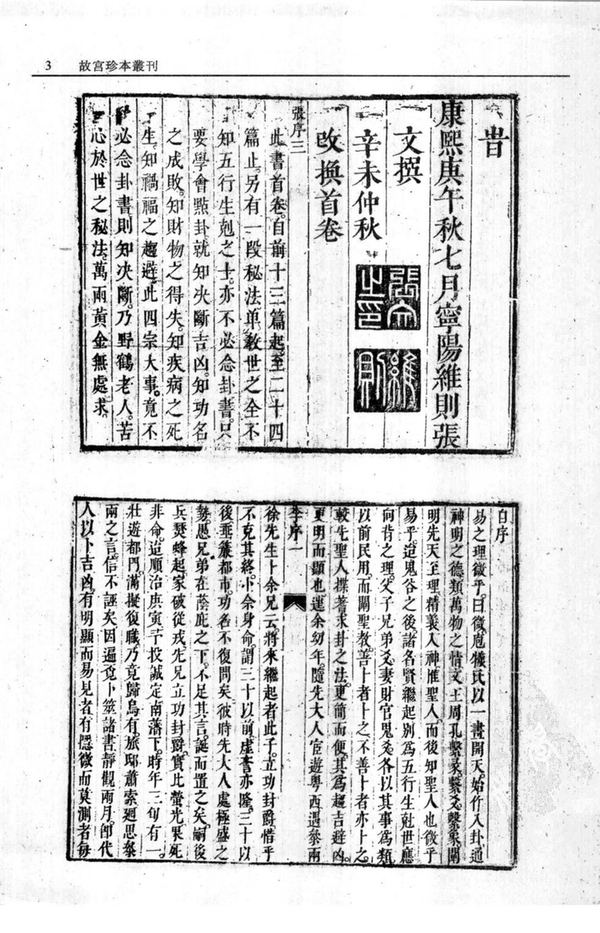 3 故宮珍本叢刊
旹
康熙庚午秋七月寧陽維則張
文撰
辛未仲秋
改換首卷
張文之印
維則
張序三
此書首卷。自前十三篇起。至二十四
篇止。另有一段秘法。单教世之全不
知五行生剋之士。亦不必念卦書。只
要學會點卦。就知決斷吉凶。知功名
之成敗。知財物之得失。知疾病之死
生。知禍福之趨避。此四宗大事。竟不
必念卦書。則知決斷。乃野鶴老人。苦
心於世之秘法。萬兩黃金無處求。
自序
易之理微乎。曰微。庖犧氏以一畫開天。始作八卦。通
神明之德。類萬物之情。文王周孔。繫彖繫爻繫象。闡
明先天至理。精義入神。惟聖人而後知聖人也。微乎
易乎。迨鬼谷之後。諸名賢繼起。別為五行生尅。世應
向背之理。父子兄弟。妻財官鬼。爻各以其事為類
以前民用。而闡聖教。善卜者卜之。不善卜者亦卜之。
較先聖人揲蓍求卦之法。更簡而便。其為趨吉避凶
更明而顯也。運余幼年。隨先大人宦遊粵西。遇蔡兩
李序一
徐先生卜余兄云。將來繼起者此子。立功封爵。惜乎
不克其終。卜余身命。謂三十以前。虛業亦隆。三十以
後。垂簾都市。功名不復問矣。彼時先大人處極盛之
勢。愚兄弟在蔭庇之下。不足其言。誕而置之矣。嗣後
兵燹蜂起。家破從戎。先兄立功封爵。實比螢光。果死
非命。迨順治庚寅。予投誠定南藩下。時年三旬有一。
壯遊都門。滿擬復職。乃竟歸烏有。旅邸蕭索。廻思蔡
兩之言。信不誣矣。因遍覓卜筮諸書。靜觀兩月。即代
人以卜吉凶。有明顯而易見者。有隱微而莫測者。每